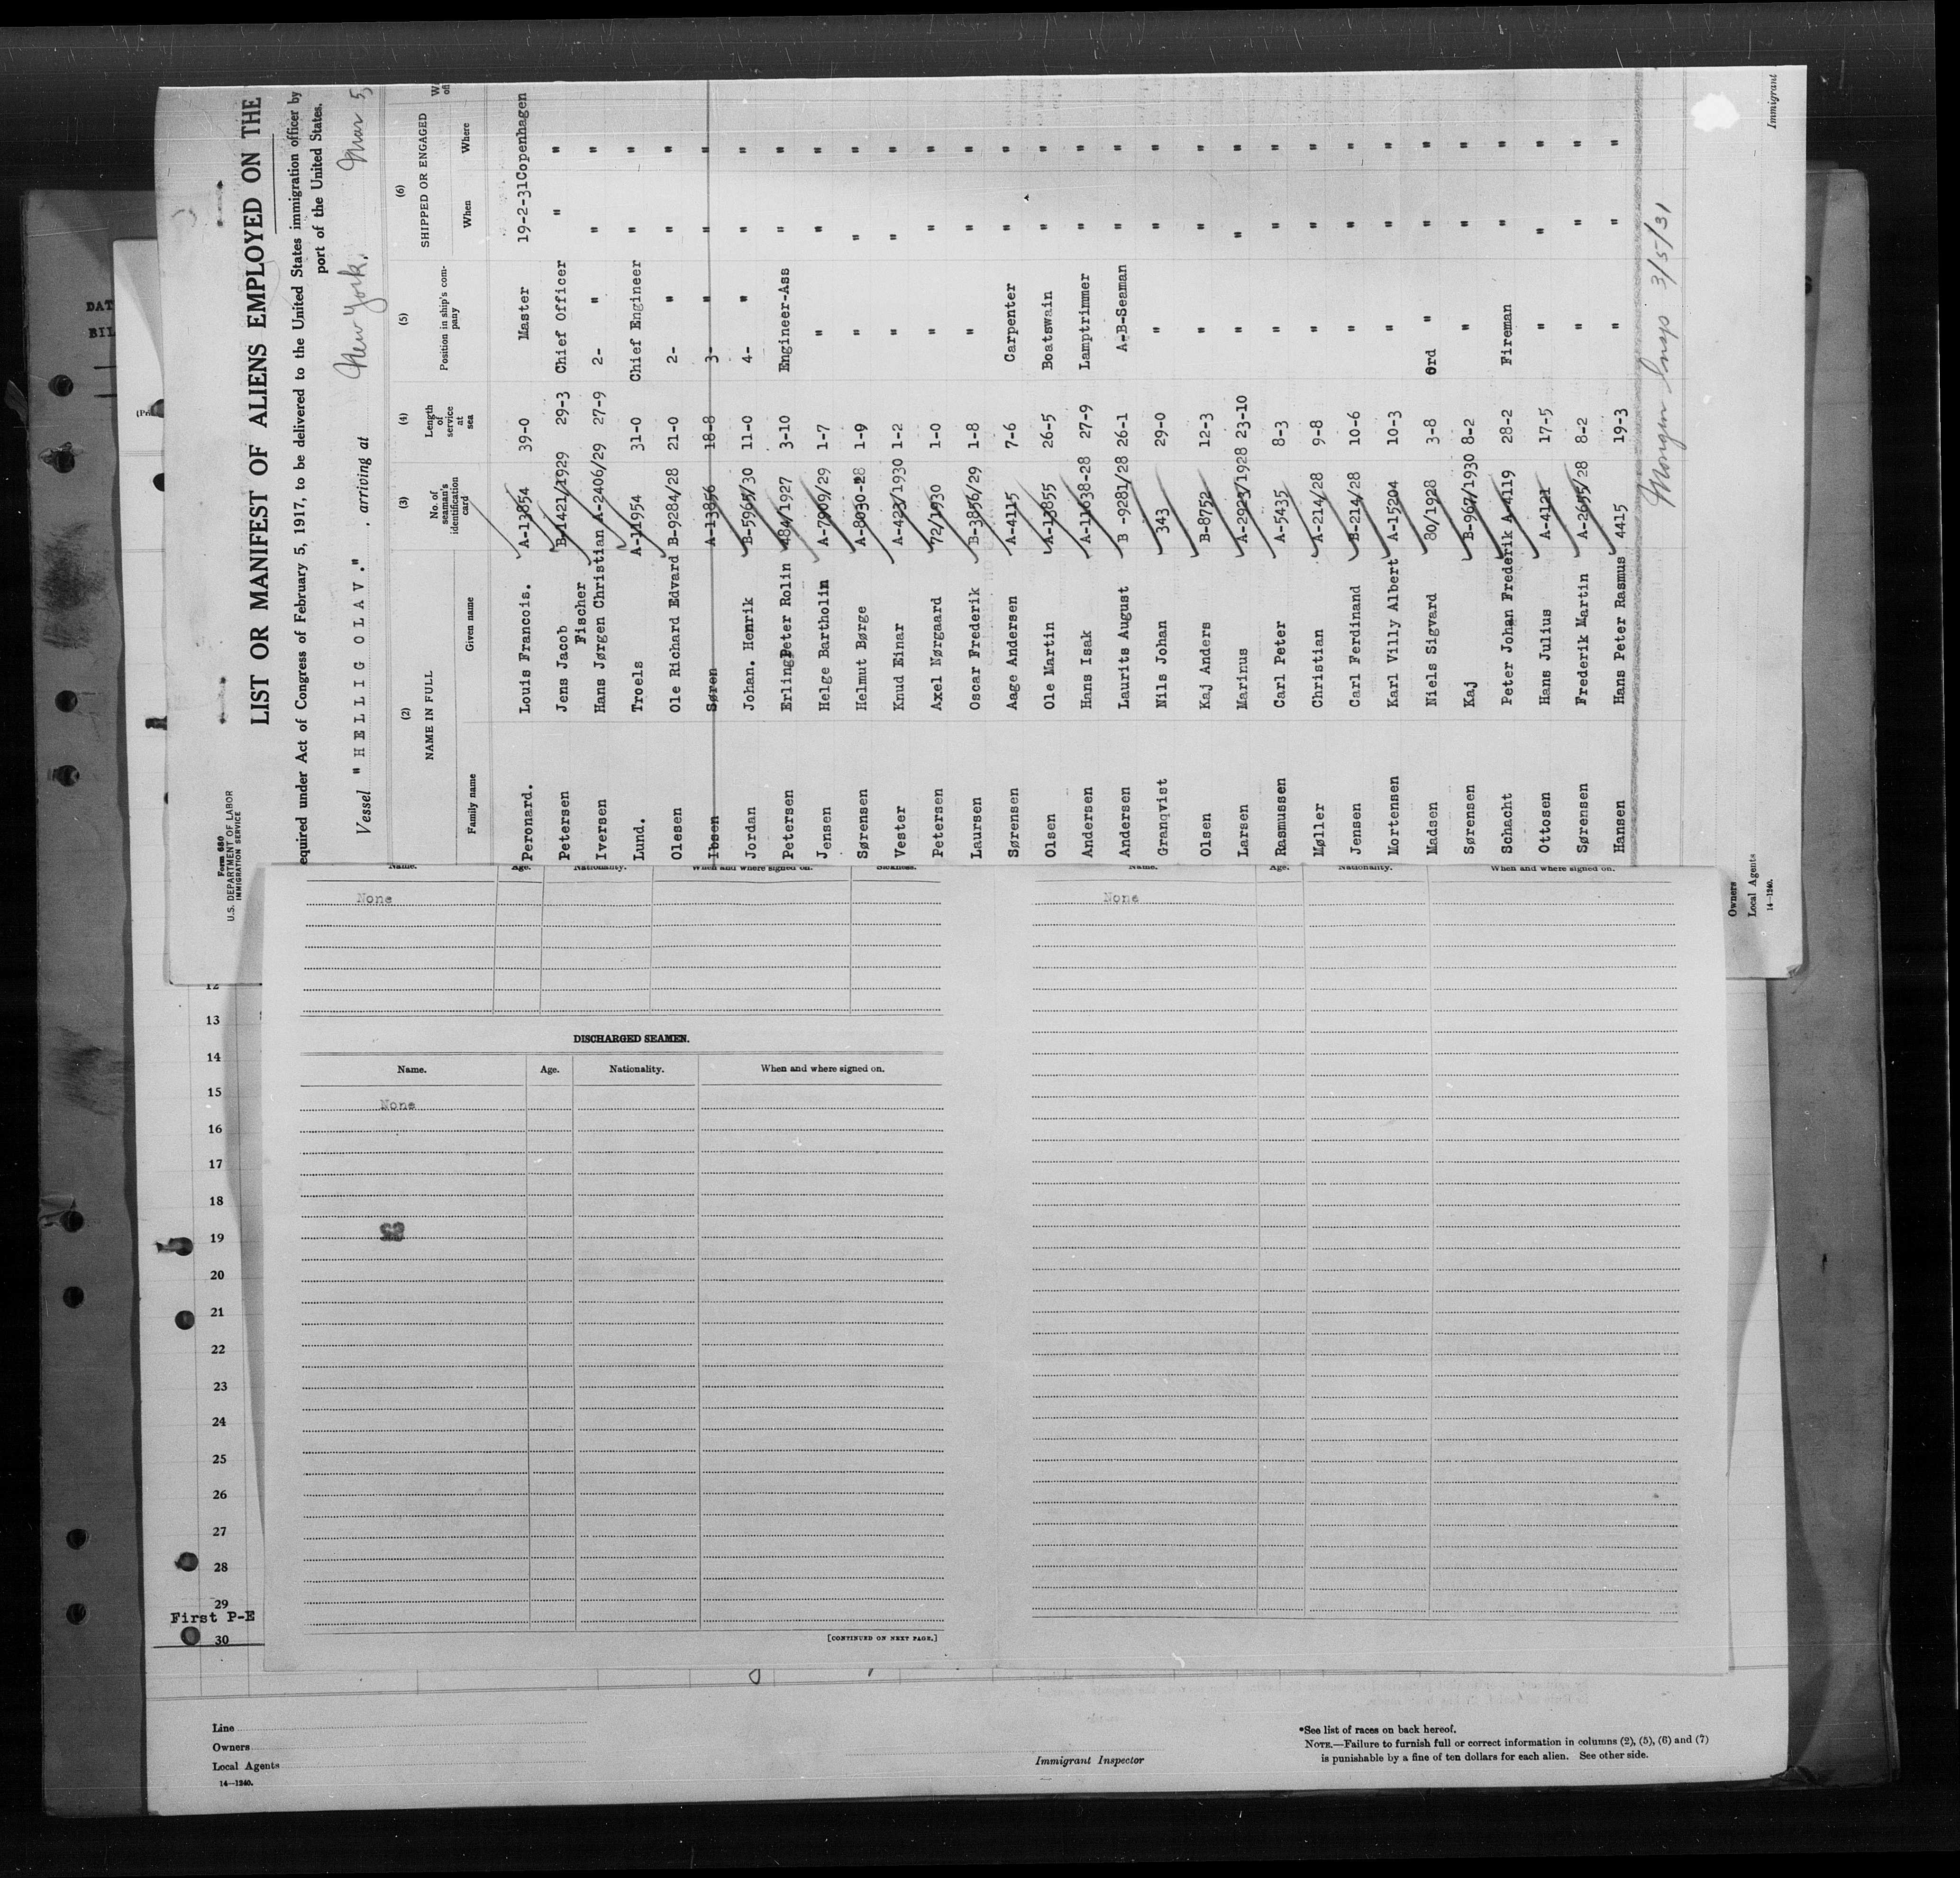 Form 680
U.S. DEPARTMENT OF LABOR
IMMIGRATION SERVICE
LIST OR MANIFEST OF ALIENS EMPLOYED ON THE
equired under Act of Congress of February 5, 1917, to be delivered to the United States immigration officer by
port of the United States.
Vessel "HELLIG OLAV." , arriving at New York, Mar 5,
(2) (3) (4) (5) (6)
NAME IN FULL No. of seaman's identification card Length of service at sea Position in ship's company SHIPPED OR ENGAGED
Family name Given name When Where
Peronard. Louis Francois. A-13854 39-0 Master 19-2-31 Copenhagen
Petersen Jens Jacob B-1421/1929 29-3 Chief Officer " "
Fischer
Iversen Hans Jørgen Christian A-2406/29 27-9 2- " " "
Lund. Troels A-11954 31-0 Chief Engineer " "
Olesen Ole Richard Edvard B-9284/28 21-0 2- " " "
Ibsen Søren A-13856 18-8 3- " " "
Jordan Johan. Henrik B-5965/30 11-0 4- " " "
Petersen Erling Peter Rolin 484/1927 3-10 Engineer-Ass " "
Jensen Helge Bartholin A-7909/29 1-7 " " "
Sørensen Helmut Børge A-8030-28 1-9 " " "
Vester Knud Einar A-423/1930 1-2 " " "
Petersen Axel Nørgaard 72/1930 1-0 " " "
Laursen Oscar Frederik B-3856/29 1-8 " " "
Sørensen Aage Andersen A-4115 7-6 Carpenter " "
Olsen Ole Martin A-13855 26-5 Boatswain " "
Andersen Hans Isak A-11638-28 27-9 Lamptrimmer " "
Andersen Laurits August B -9281/28 26-1 A-B-Seaman " "
Granqvist Nils Johan 343 29-0 " " "
Olsen Kaj Anders B-8752 12-3 " " "
Larsen Marinus A-2923/1928 23-10 " " "
Rasmussen Carl Peter A-5435 8-3 " " "
Møller Christian A-214/28 9-8 " " "
Jensen Carl Ferdinand B-214/28 10-6 " " "
Mortensen Karl Villy Albert A-15204 10-3 " " "
Madsen Niels Sigvard 80/1928 3-8 Ord " " "
Sørensen Kaj B-967/1930 8-2 " " "
Schacht Peter Johan Frederik A-4119 28-2 Fireman " "
Ottosen Hans Julius A-4121 17-5 " " "
Sørensen Frederik Martin A-2655/28 8-2 " " "
Hansen Hans Peter Rasmus 4415 19-3 " " "
Insp 3/5/31
Owners
Local Agents
14—1240.
Immigrant
DAT
BIL
Name. Age. Nationality. When and where signed on. Sickness.
None
DISCHARGED SEAMEN.
Name. Age. Nationality. When and where signed on.
None
[CONTINUED ON NEXT PAGE.]
Name. Age. Nationality. When and where signed on.
None
12
13
14
15
16
17
18
19
20
21
22
23
24
25
26
27
28
29
First P-E
30
Line
Owners
Local Agents
14—1240.
Immigrant Inspector
*See list of races on back hereof.
NOTE.—Failure to furnish full or correct information in columns (2), (5), (6) and (7)
is punishable by a fine of ten dollars for each alien. See other side.